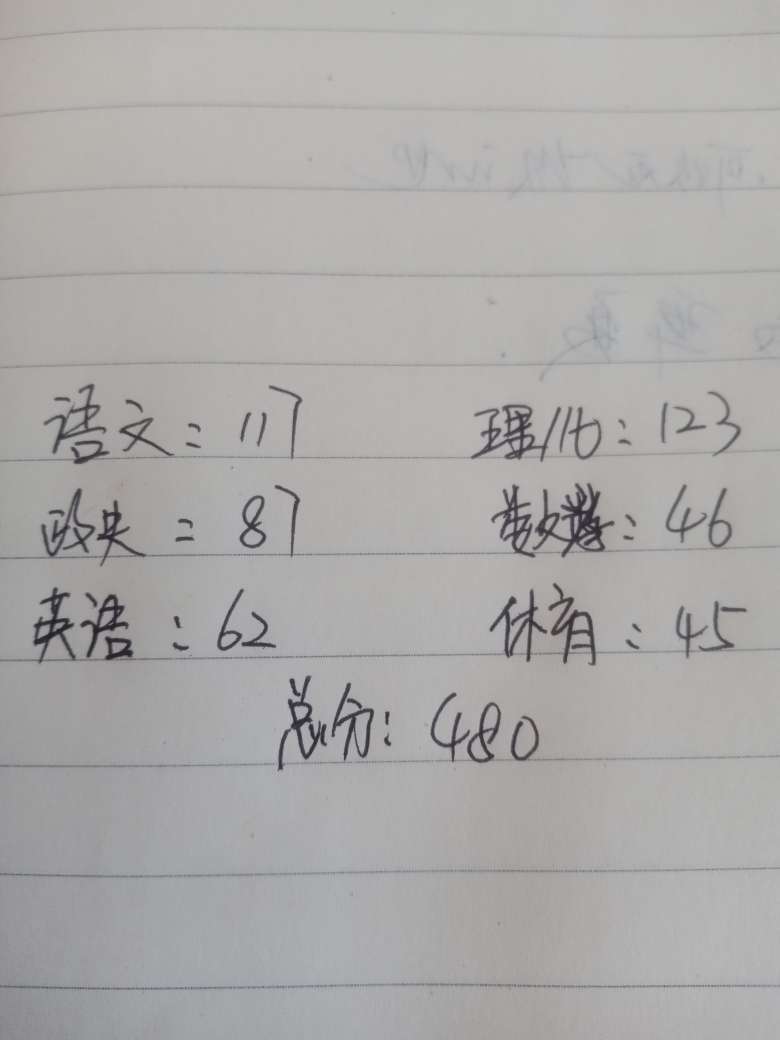 语文：117 理化：123
政史：87 数学：46
英语：62 体育：45
总分：480